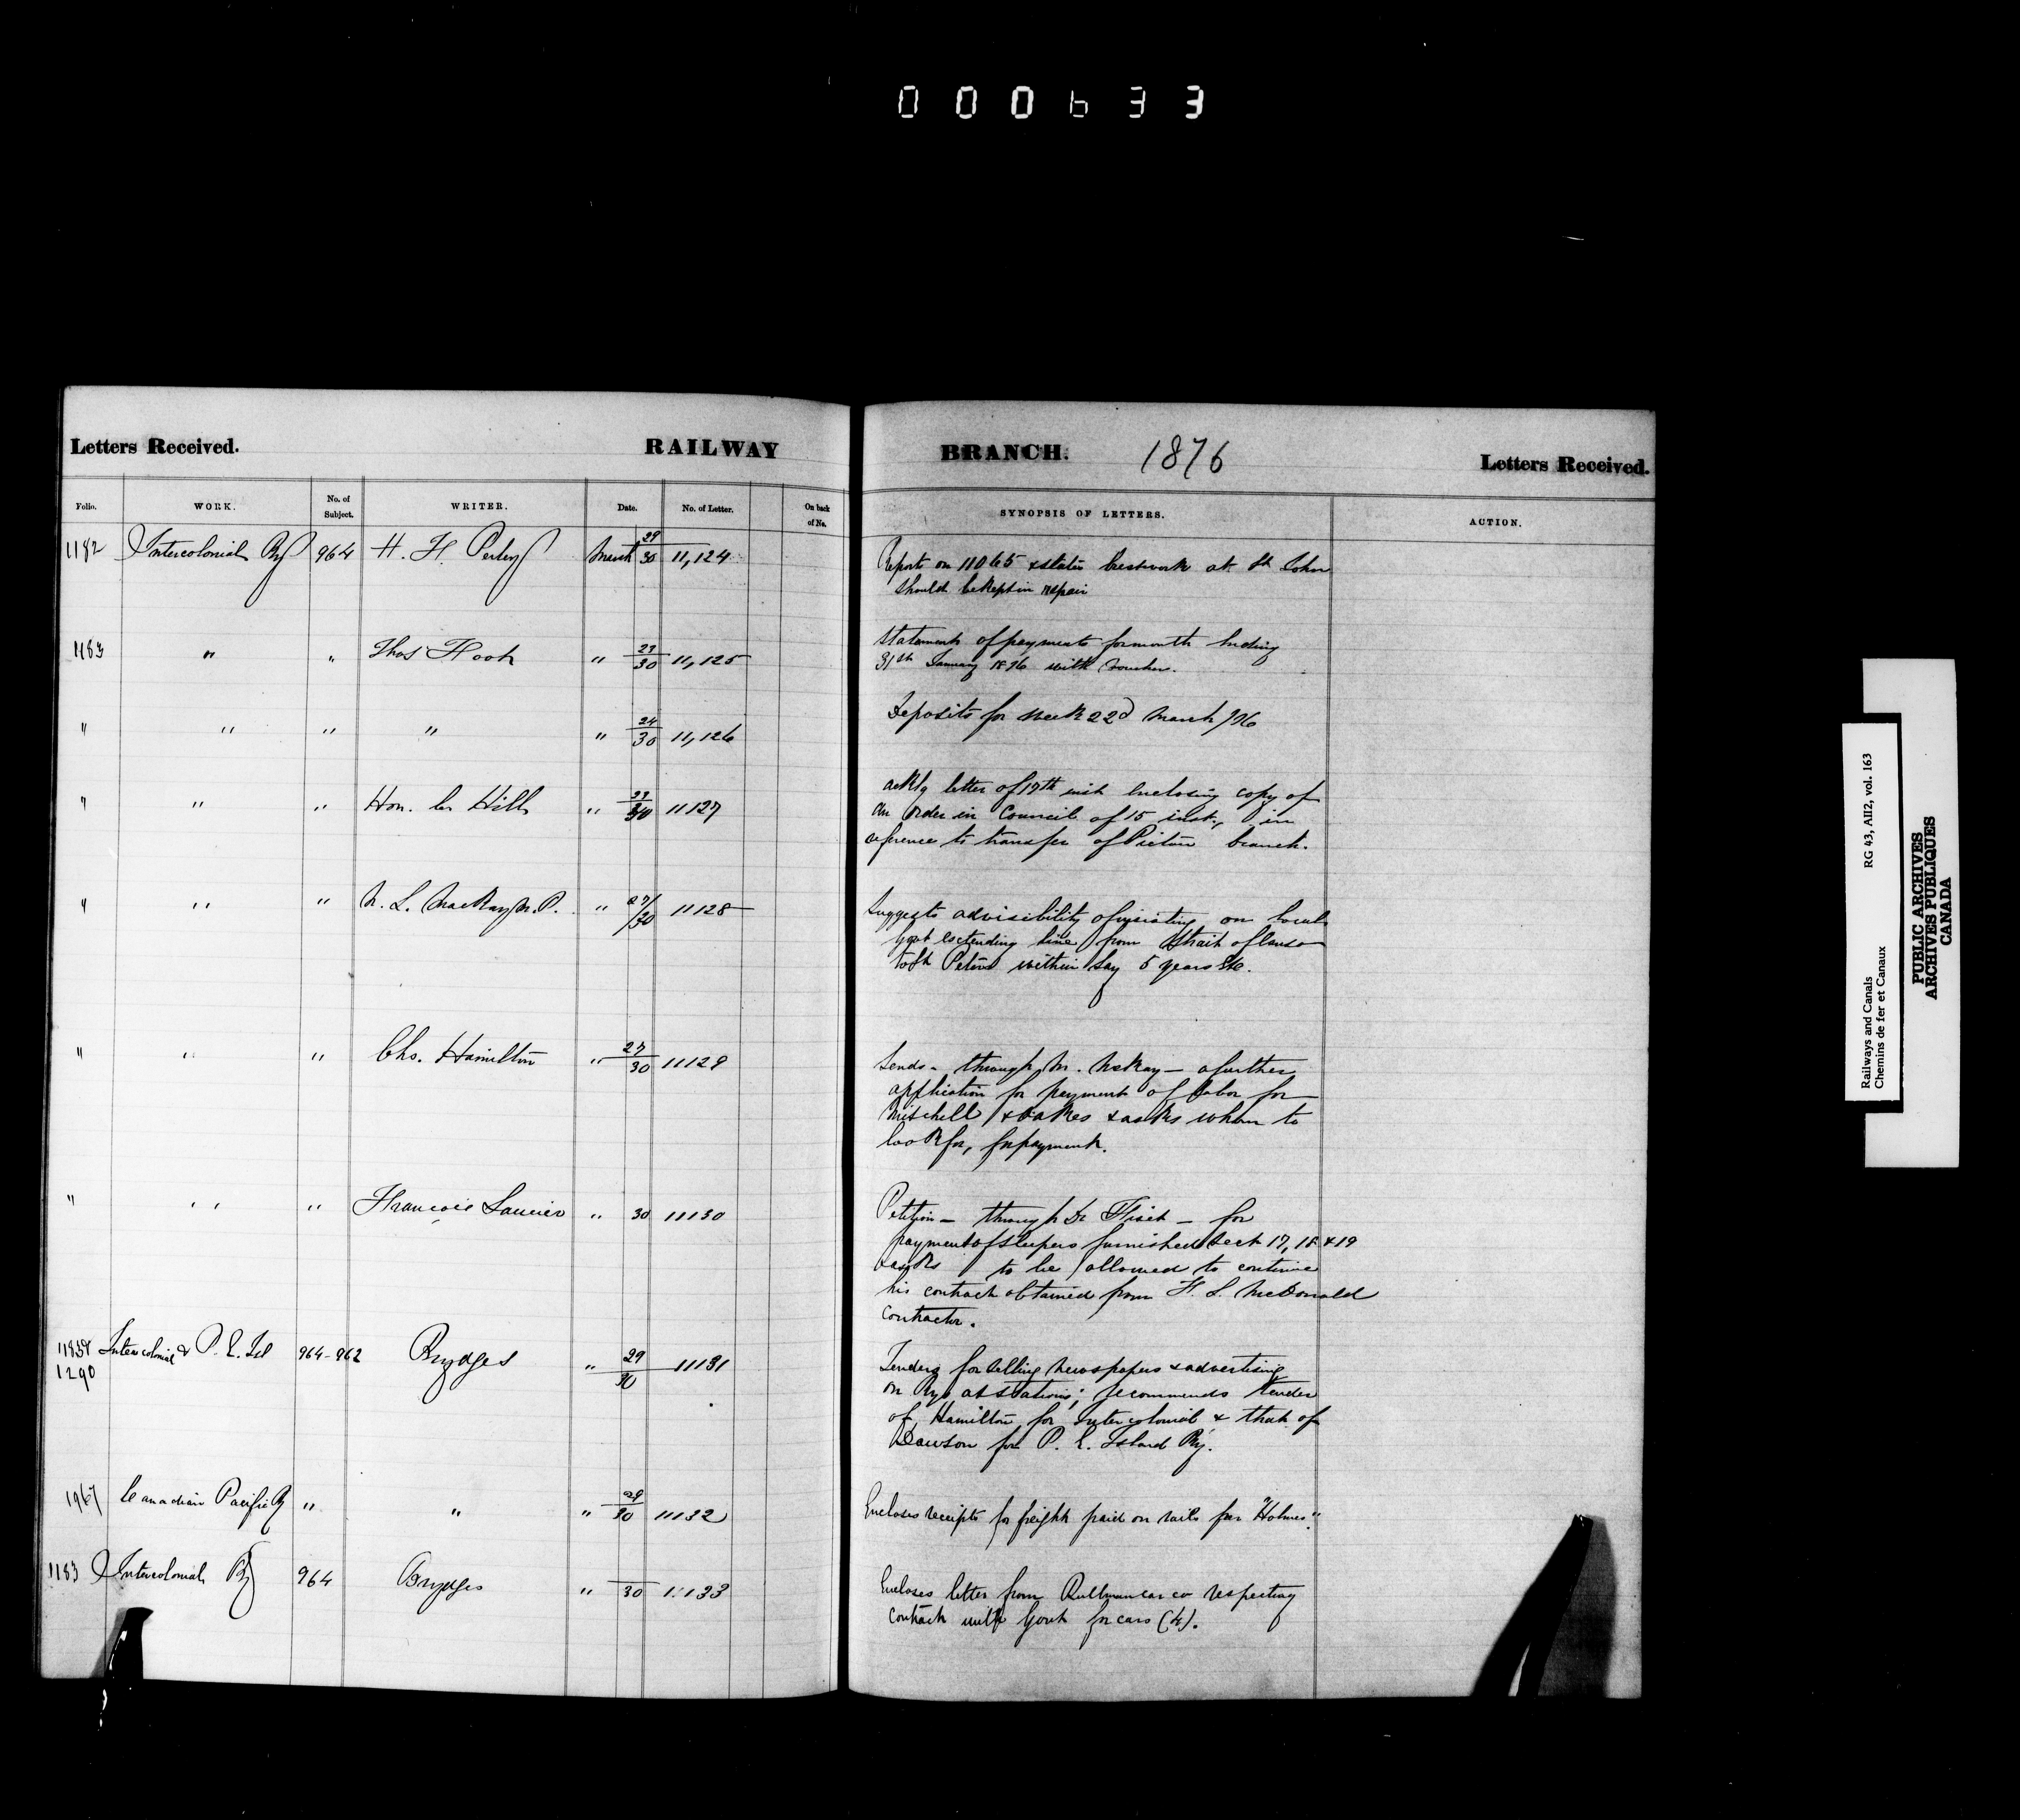 000633
Letters Received. RAILWAY BRANCH. 1876 Letters Received.
Folio. WORK. No. of Subject. WRITER. Date. No. of Letter. On back of No. SYNOPSIS OF LETTERS. ACTION.
1182 Intercolonial Ry 964 H. F. Perley March 29/30 11,124 Reports on 11065 & states brestwork at St John
should be kept in repair
1183 " " Thos Foot " 23/30 11,125 Statements of payments for month ending
31st January 1876 with voucher.
" " " " " 24/30 11,126 Deposits for week 22d March /76
" " " Hon. Hill " 23/30 11127 ackg letter of 17th inst enclosing copy of
an order in Council of 15 inst., in
reference to transfer of Pictou branch.
" " " N. L. MacKay M.P. " 27/30 11128 Suggests advisibility of on Local
Govt extending line from Strait of Canso
to St Peters within say 5 years &c.
" " " Chs. Hamilton " 27/30 11129 Sends - through Mr. McKay - a further
application for payment of labor for
Mitchell & Oakes & asks whom to
look for, for payment.
" " " Francois " 30 11130 Petition - through Dr Fiset - for
payment of sleepers furnished Sect 17, 18 & 19
& asks to be allowed to continue
his contract obtained from F. L. McDonald
Contractor.
Intercolonial & P. E. Isl 964-962 Brydges " 29/30 11131 Tenders for selling newspapers & advertising
1290 on Rys at stations; recommends tender
of Hamilton for Intercolonial & that of
Dawson for P. E. Island Ry.
1967 Canadian Pacific Ry " " " 29/30 11132 Encloses receipts for freight paid on rails per "Holmes".
1183 Intercolonial Ry 964 Brydges " 30 11133 Encloses letter from Pullman car co respecting
contract with Govt for cars (4).
Railways and Canals RG 43, AII2, vol. 163
Chemins de fer et Canaux
PUBLIC ARCHIVES
ARCHIVES PUBLIQUES
CANADA